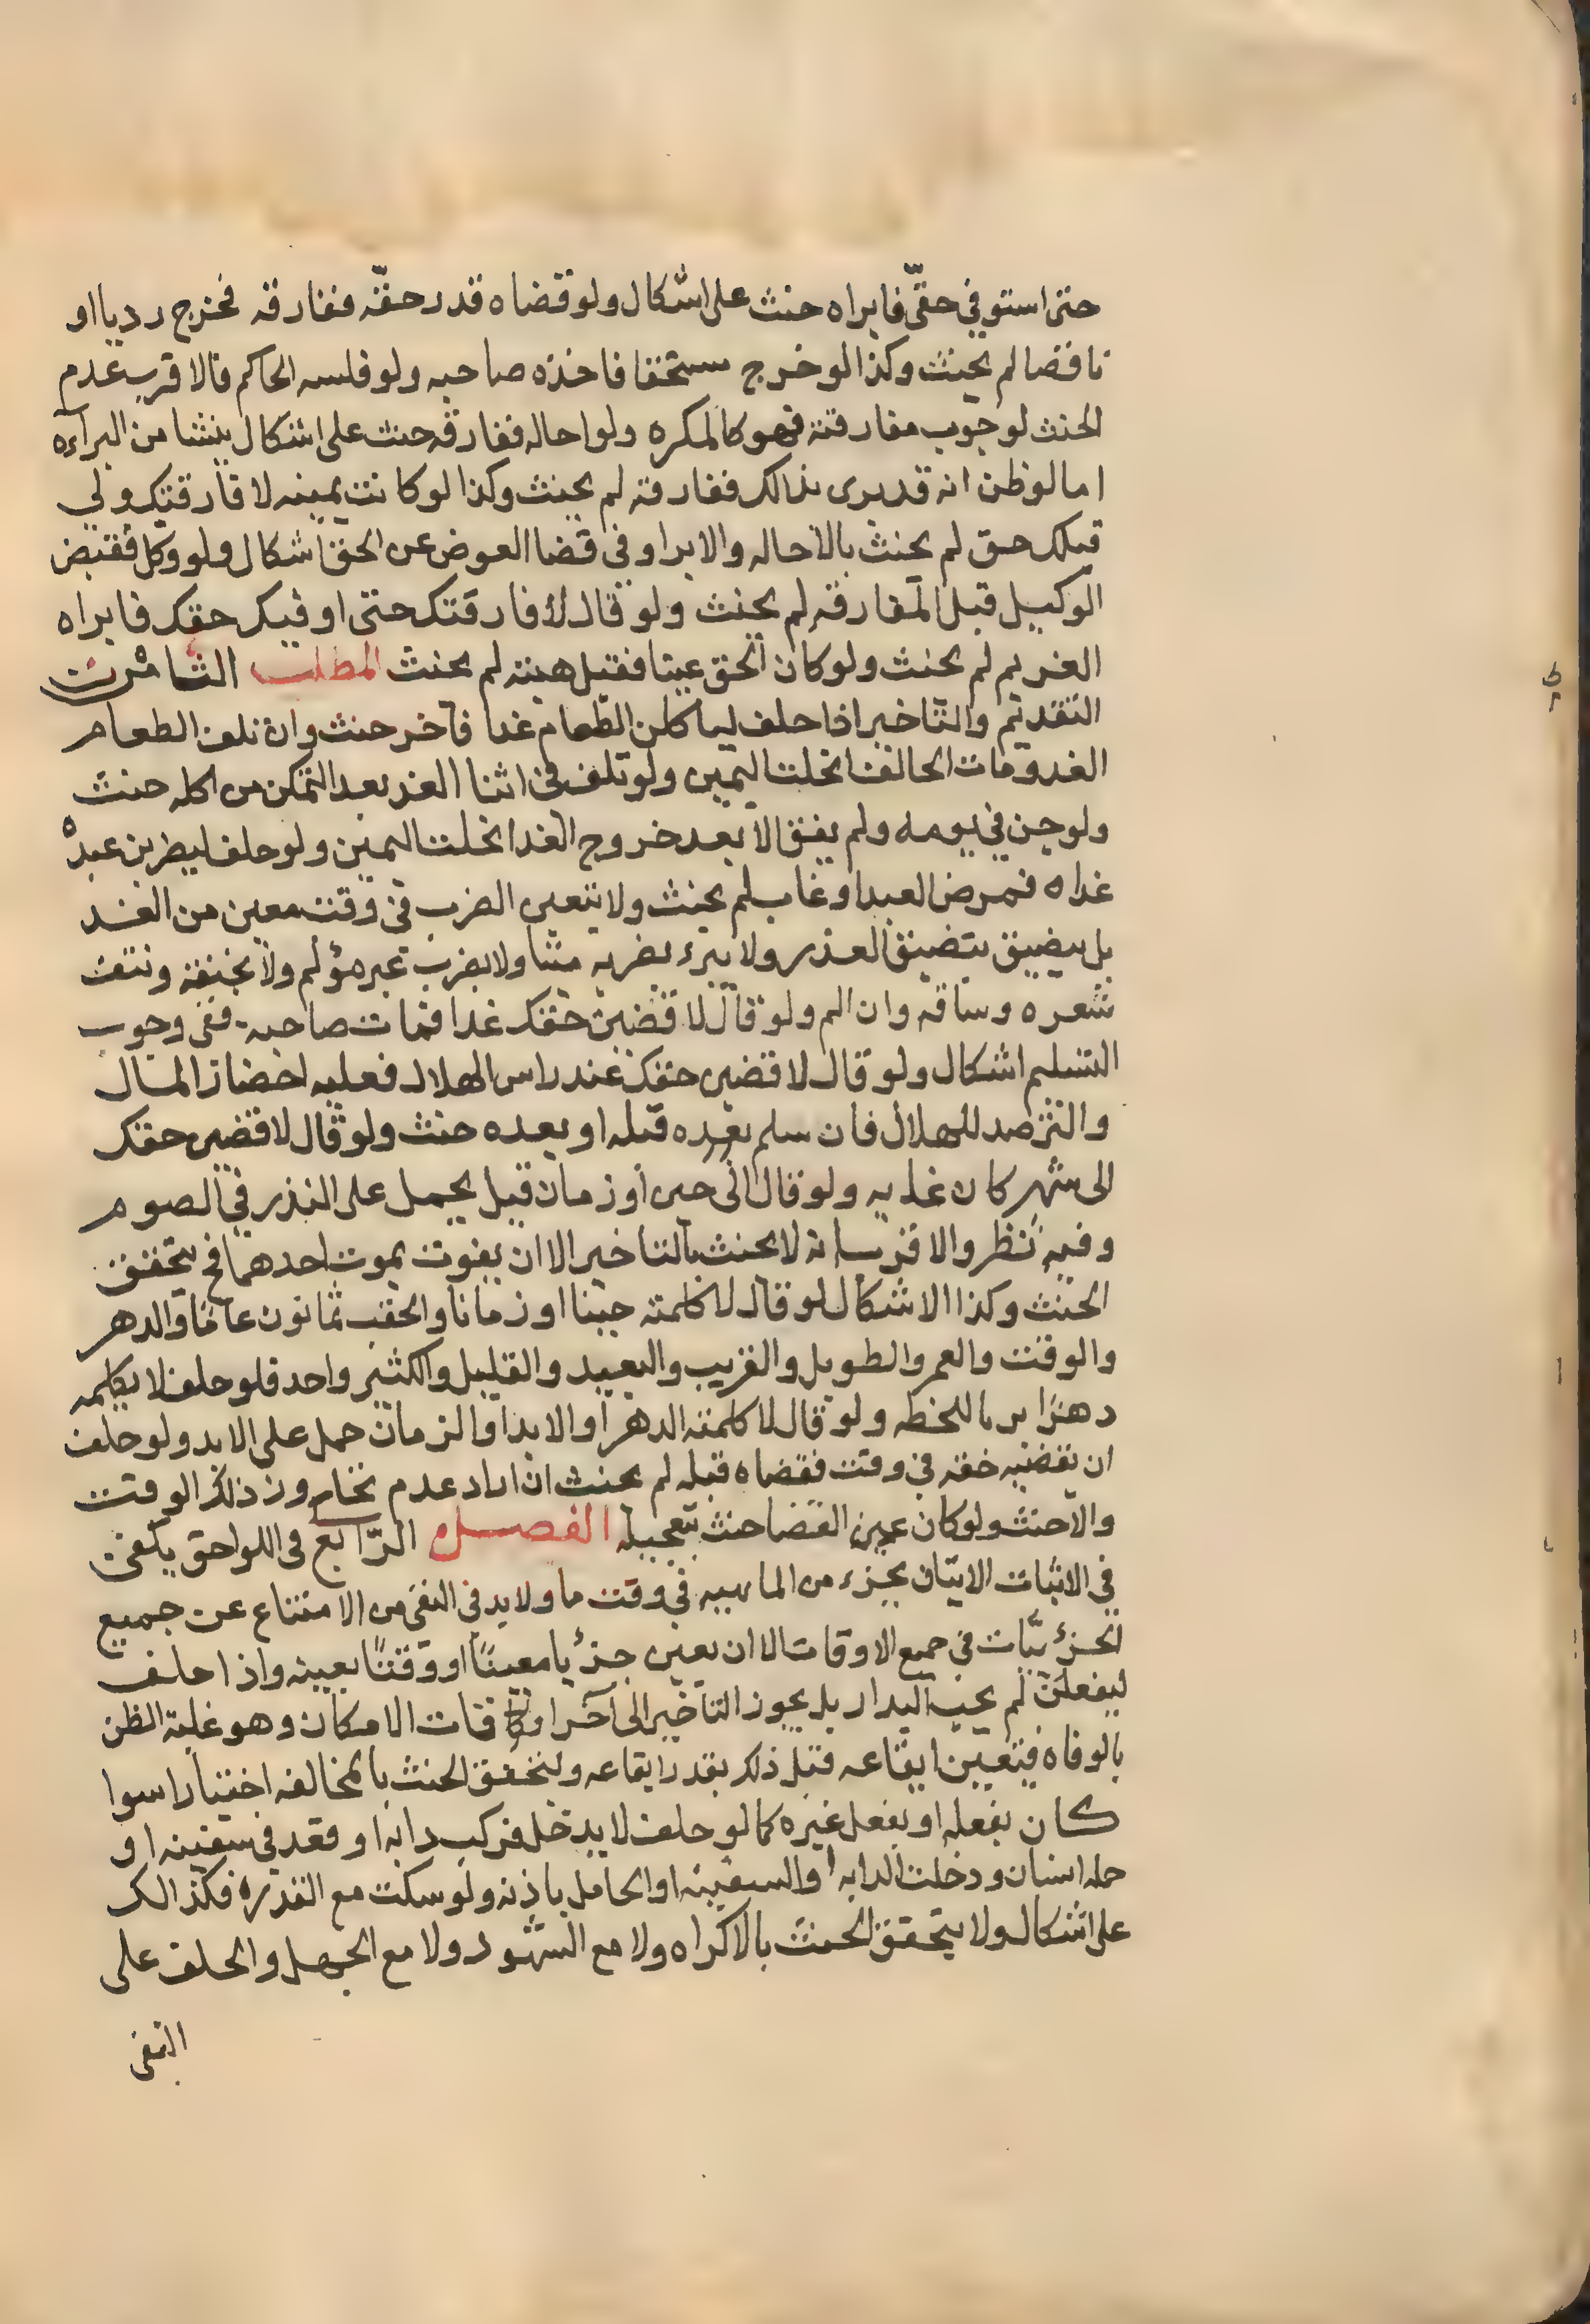 حتى استوفي حقّي فابراه حنث على اشكال ولو قضاه قدر حقّه ففارقه فخرج رديا او
ناقصا لم يحنث وكذا لو خرج مستحقا فاخذه صاحبه ولو فلسه الحاكم فالاقرب عدم
الحنث لوجوب مفارقته فهو كالمكره ولو احاله ففارقه حنث على اشكال ينشا من البراءه
اما لو ظن انه قد برى بذالك ففارقه لم يحنث وكذا لو كانت يمينه لا فارقتك ولي
قبلك حق لم يحنث بالاحاله والابرا وفى قضا العوض عن الحق اشكال ولو وكل فقبض
الوكيل قبل المفارقه لم يحنث ولو قال لا فارقتك حتى اوفيك حقك فابراه
الغريم لم يحنث ولو كان الحق عينا فقبل هبته لم يحنث المطلب الثامن في
التقديم والتاخير اذا حلف لياكلن الطعام غدا فاخر حنث وان تلف الطعام
الغد ومات الحالف انحلت اليمين ولو تلف في اثنا الغد بعد التمكن من اكله حنث
ولو جن في يومه ولم يفق الا بعد خروج الغد انحلت اليمين ولو حلف ليضربن عبده
غداه فمرض العبد او غاب لم يحنث ولا يتعين الضرب في وقت معين من الغد
بل يضيق بتضيق العذر ولا يبرء بضربه ميتا ولا بضرب غير مؤلم ولا بخنقه ونتف
شعره وساقه وان الم ولو قال لاقضين حقك غدا فمات صاحبه ففى وجوب
التسليم اشكال ولو قال لاقضين حقك عند راس الهلال فعليه احضار المال
والترصد للهلال فان سلم بعده قبله او بعده حنث ولو قال لاقضين حقك
الى شهر كان غايه ولو قال الى حين او زمان قيل يحمل على النذر في الصوم
وفيه نظر والاقرب انه لا يحنث بالتاخير الا ان يفوت بموت احدهما فح يتحقق
الحنث وكذا الاشكال لو قال لا كلمته حينا او زمانا والحقب ثمانون عامًا والدهر
والوقت والعمر والطويل والقريب والبعيد والقليل والكثير واحد فلو حلف لا يكلمه
دهرًا بر باللحظه ولو قال لا كلمته الدهر او الابد او الزمان حمل على الابد ولو حلف
ان يقضيه حقه في وقت فقضاه قبله لم يحنث ان اراد عدم تجاوز ذلك الوقت
والا حنث ولو كان عين القضا حنث بتعجيله الفصل الرّابع فى اللواحق يكفى
في الاثبات الاتيان بجزء من الماهيه في وقت ما ولابد في النفى من الامتناع عن جميع
الجزئيّات في جميع الاوقات الا ان يعين جزئيا معينًا او وقتًا بعينه واذا حلف
ليفعلنّ لم يجب البدار بل يجوز التاخير الى آخر اوقات الامكان وهو غلبة الظن
بالوفاه فيتعين ايقاعه قبل ذلك بقدر ايقاعه ويتحقق الحنث بالمخالفه اختيارا سوا
كان بفعله او بفعل غيره كما لو حلف لا يدخل فركب دابه او قعد في سفينه او
حمله انسان ودخلت الدابه او السفينه او الحامل باذنه ولو سكت مع القدره فكذالك
على اشكال ولا يتحقق الحنث بالاكراه ولا مع السهو ولا مع الجهل والحلف على
النفى